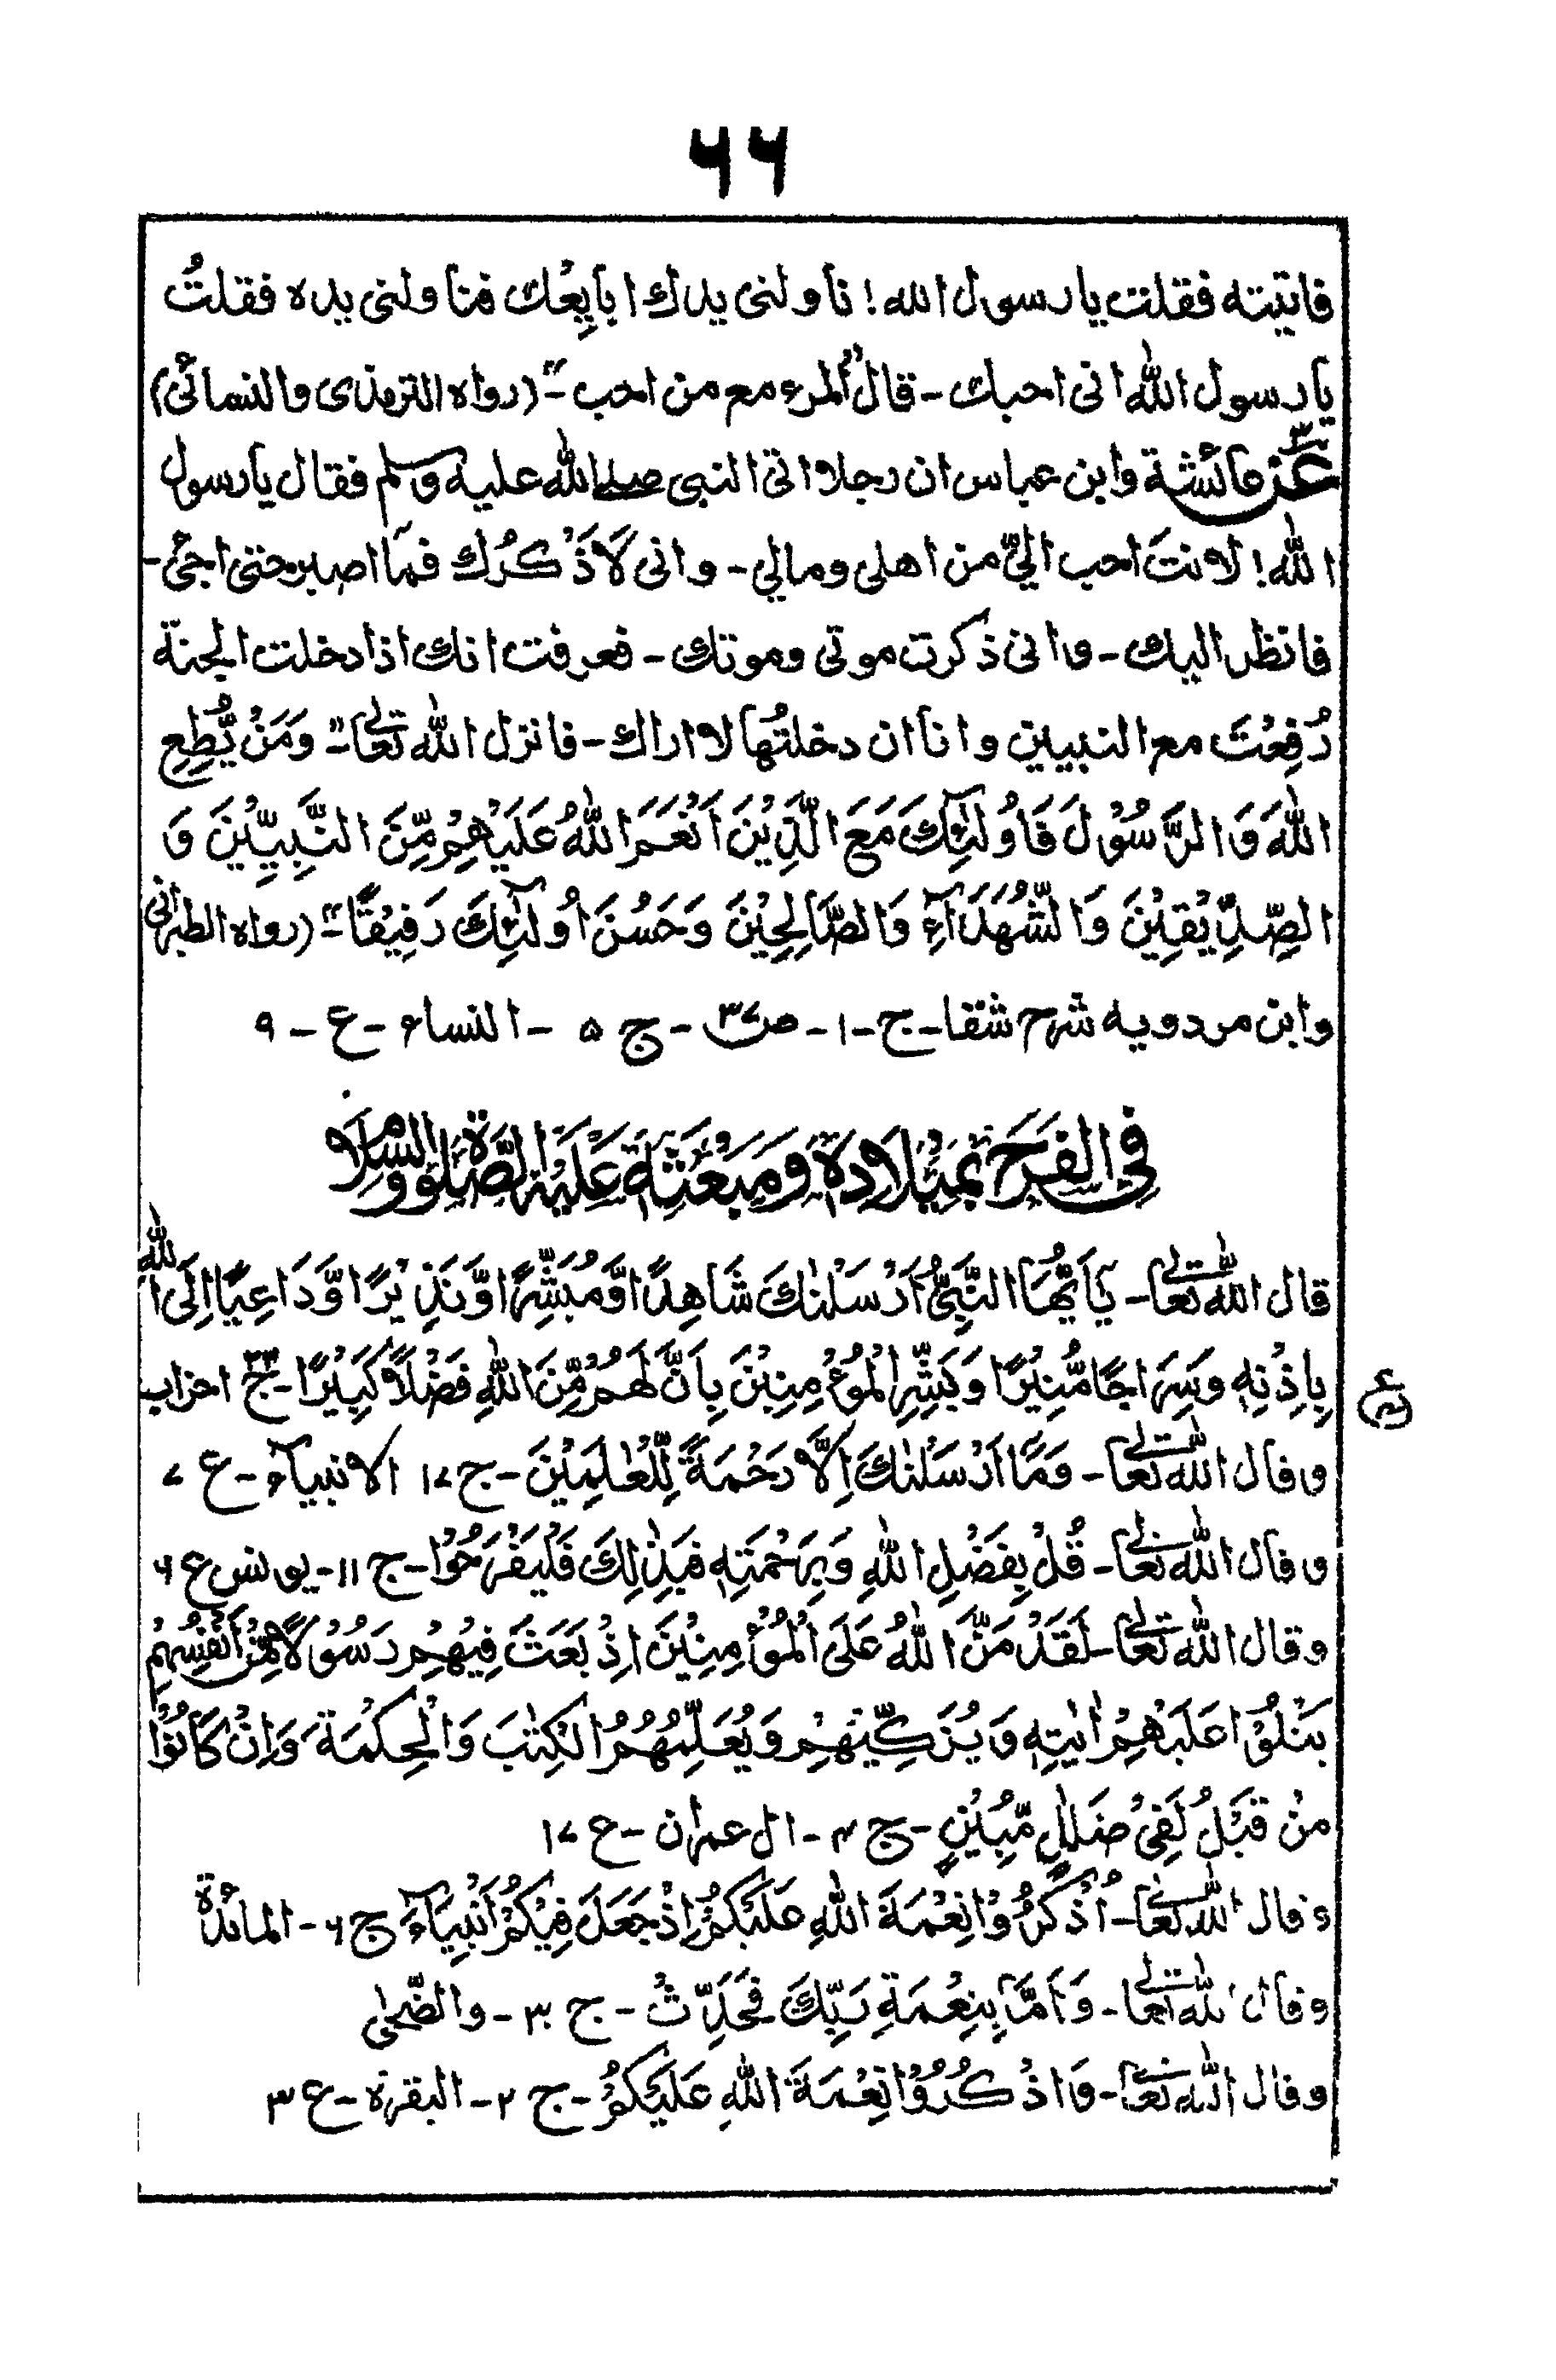 ۶۶
فاتيته فقلت يا رسول الله! ناولنى يدك ابايِعُك فناولنى يده فقلتُ
يا رسول اللّٰه انى احبك - قال "المرء مع من احب" - (رواه الترمذى والنسائى)
عَنْ عائشة وابن عباس ان رجلا اتى النبى صلے اللّٰه عليه وسلم فقال يا رسول
اللّٰه! لانتَ احب الىّ من اهلى ومالي - وانى لَاَذْكُرُك فمَا اصبر حتى اجئ -
فانظر اليك - وانى ذكرت موتى وموتك - فعرفت انك اذا دخلت الجنة
رُفِعْتَ مع النبيين وانا ان دخلتُها لا اراك - فانزل اللّٰه تعالٰى - "وَمَنْ يُّطِعِ
اللّٰهَ وَالرَّسُوْلَ فَاُولٰٓئِكَ مَعَ الَّذِيْنَ اَنْعَمَ اللّٰهُ عَلَيْهِمْ مِّنَ النَّبِيِّيْنَ وَ
الصِّدِّيْقِيْنَ وَالشُّهَدَآءِ وَالصَّالِحِيْنَ وَحَسُنَ اُولٰٓئِكَ رَفِيْقًا" - (رواه الطبرانى
وابن مردويه شرح شفا - ج - ۱ - ص ۳۷ - ج ۵ - النساء - ع - ۹
فِى الفَرَحِ بِمِيْلَادِهٖ وَمَبْعَثِهٖ عَلَيْهِ الصَّلٰوةُ وَالسَّلَام
قال اللّٰه تعالٰى - يٰاَيُّهَا النَّبِىُّ اَرْسَلْنٰكَ شَاهِدًا وَّمُبَشِّرًا وَّنَذِيْرًا وَّدَاعِيًا اِلَى اللّٰهِ
بِاِذْنِهٖ وَسِرَاجًا مُّنِيْرًا وَبَشِّرِ الْمُؤْمِنِيْنَ بِاَنَّ لَهُمْ مِّنَ اللّٰهِ فَضْلًا كَبِيْرًا - ج ۳۳ احزاب
وقال اللّٰه تعالٰى - وَمَا اَرْسَلْنٰكَ اِلَّا رَحْمَةً لِّلْعٰلَمِيْنَ - ج ۱۷ الانبيآء - ع ۷
وقال اللّٰه تعالٰى - قُلْ بِفَضْلِ اللّٰهِ وَبِرَحْمَتِهٖ فَبِذٰلِكَ فَلْيَفْرَحُوْا - ج ۱۱ - يونس ع ۶
وقال اللّٰه تعالٰى - لَقَدْ مَنَّ اللّٰهُ عَلَى الْمُؤْمِنِيْنَ اِذْ بَعَثَ فِيْهِمْ رَسُوْلًا مِّنْ اَنْفُسِهِمْ
يَتْلُوْا عَلَيْهِمْ اٰيٰتِهٖ وَيُزَكِّيْهِمْ وَيُعَلِّمُهُمُ الْكِتٰبَ وَالْحِكْمَةَ وَاِنْ كَانُوْا
مِنْ قَبْلُ لَفِىْ ضَلٰلٍ مُّبِيْنٍ - ج ۴ - ال عمران - ع ۱۷
وقال اللّٰه تعالٰى - اُذْكُرُوْا نِعْمَةَ اللّٰهِ عَلَيْكُمْ اِذْ جَعَلَ فِيْكُمْ اَنْبِيَآءَ ج ۶ - المائدة
وقال اللّٰه تعالٰى - وَاَمَّا بِنِعْمَةِ رَبِّكَ فَحَدِّثْ - ج ۳۰ - والضّحٰى
وقال اللّٰه تعالٰى - وَاذْكُرُوْا نِعْمَةَ اللّٰهِ عَلَيْكُمْ - ج ۲ - البقرة - ع ۳